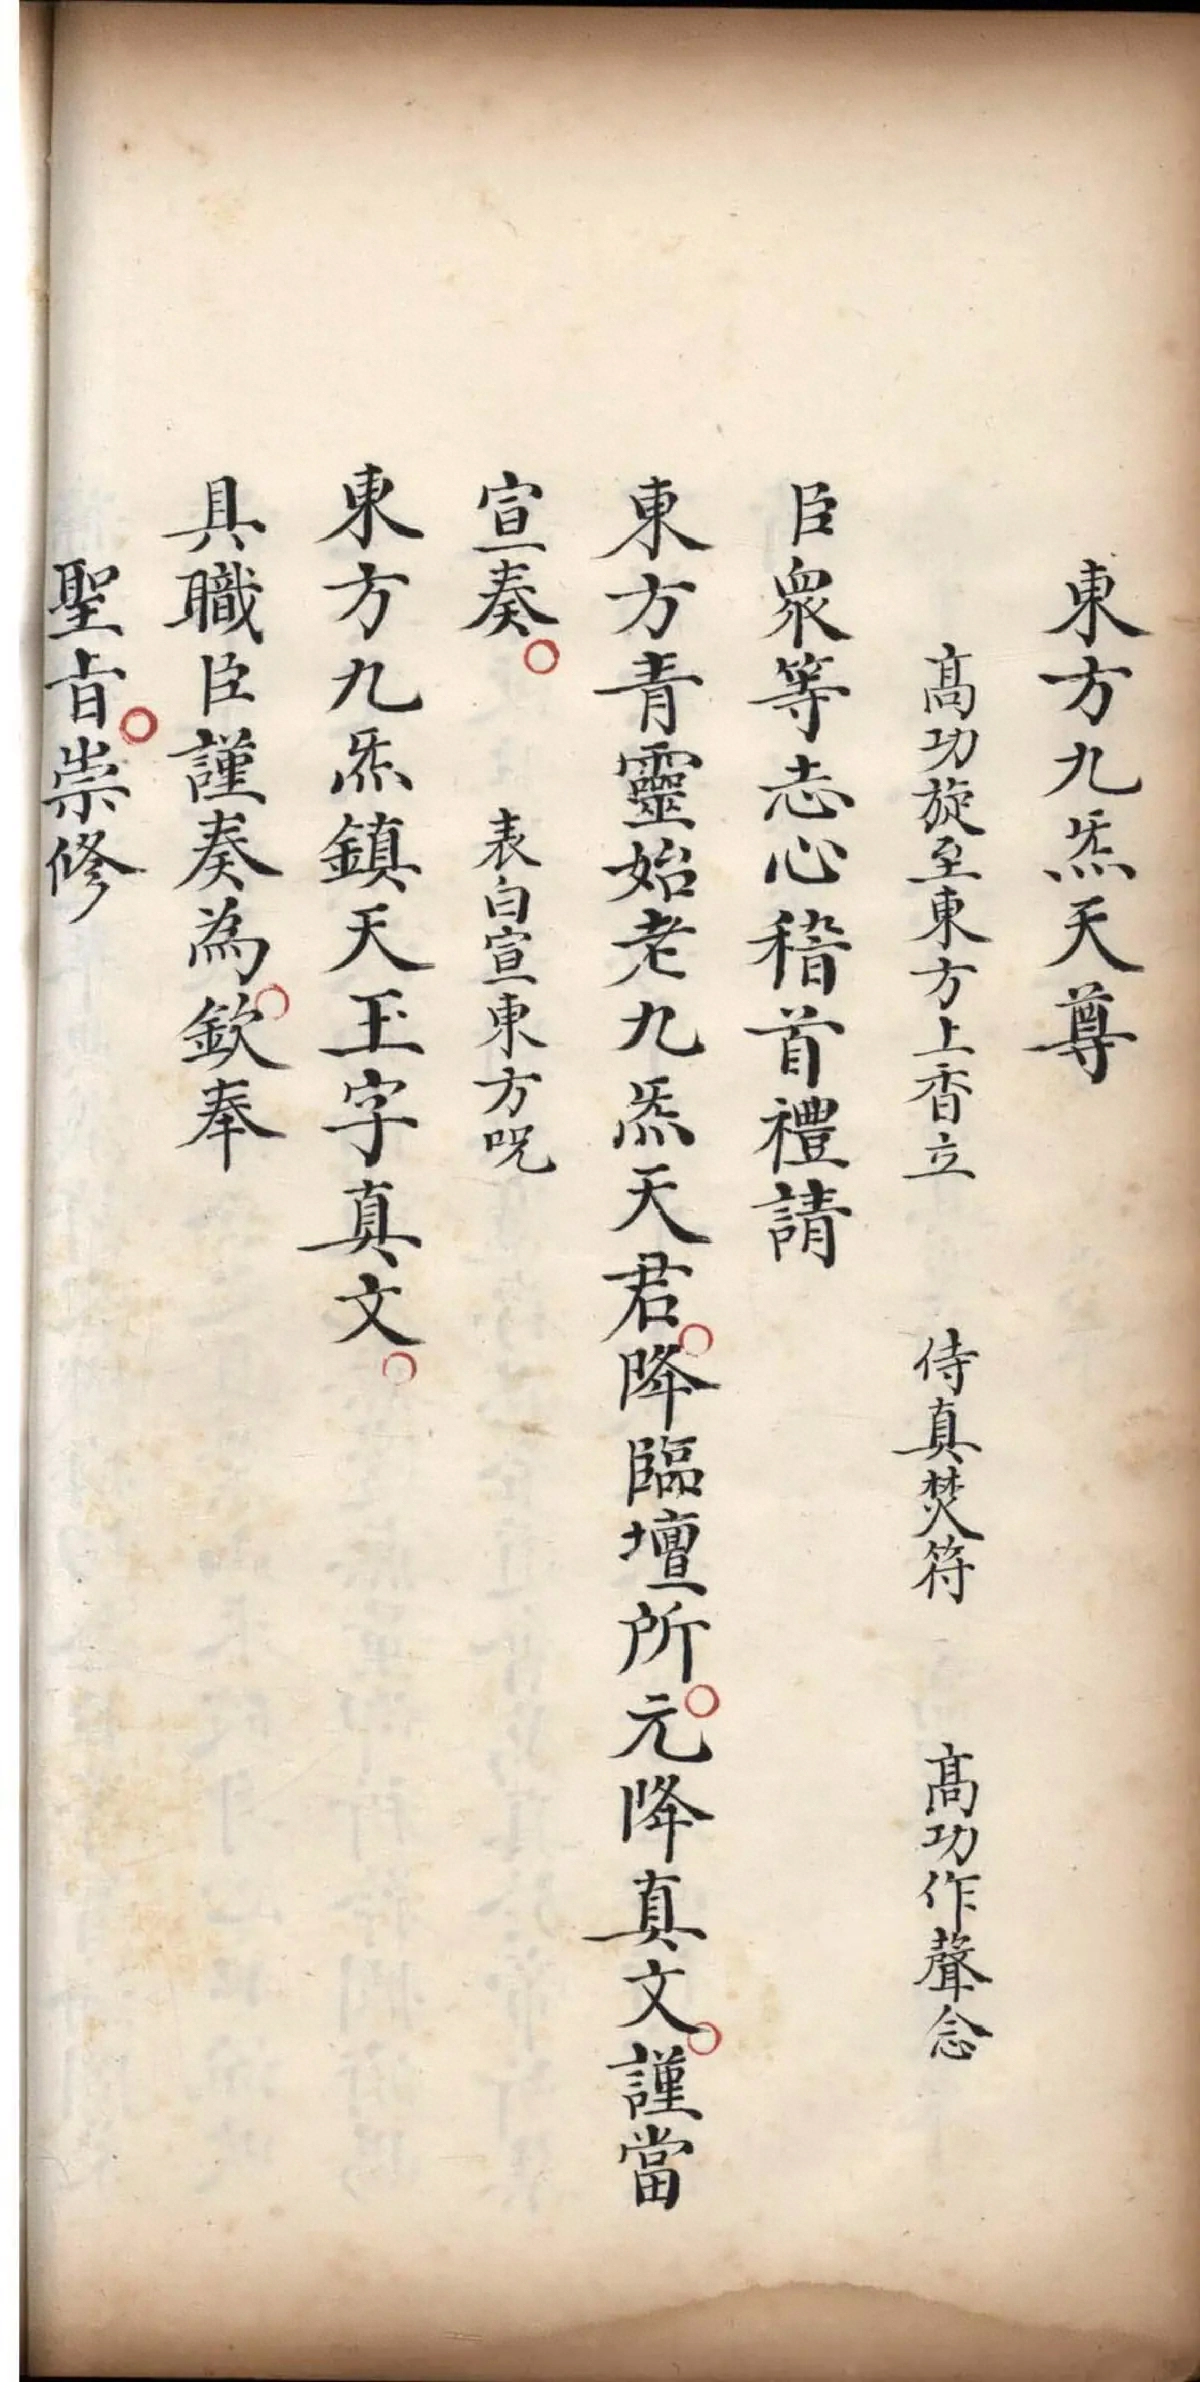 東方九炁天尊
高功旋至東方上香立　侍真焚符　高功作聲念
臣衆等志心稽首禮請
東方青靈始老九炁天君○降臨壇所○元降真文○謹當
宣奏○　表白宣東方呪
東方九炁鎮天玉字真文○
具職臣謹奏為○欽奉
聖旨○崇修